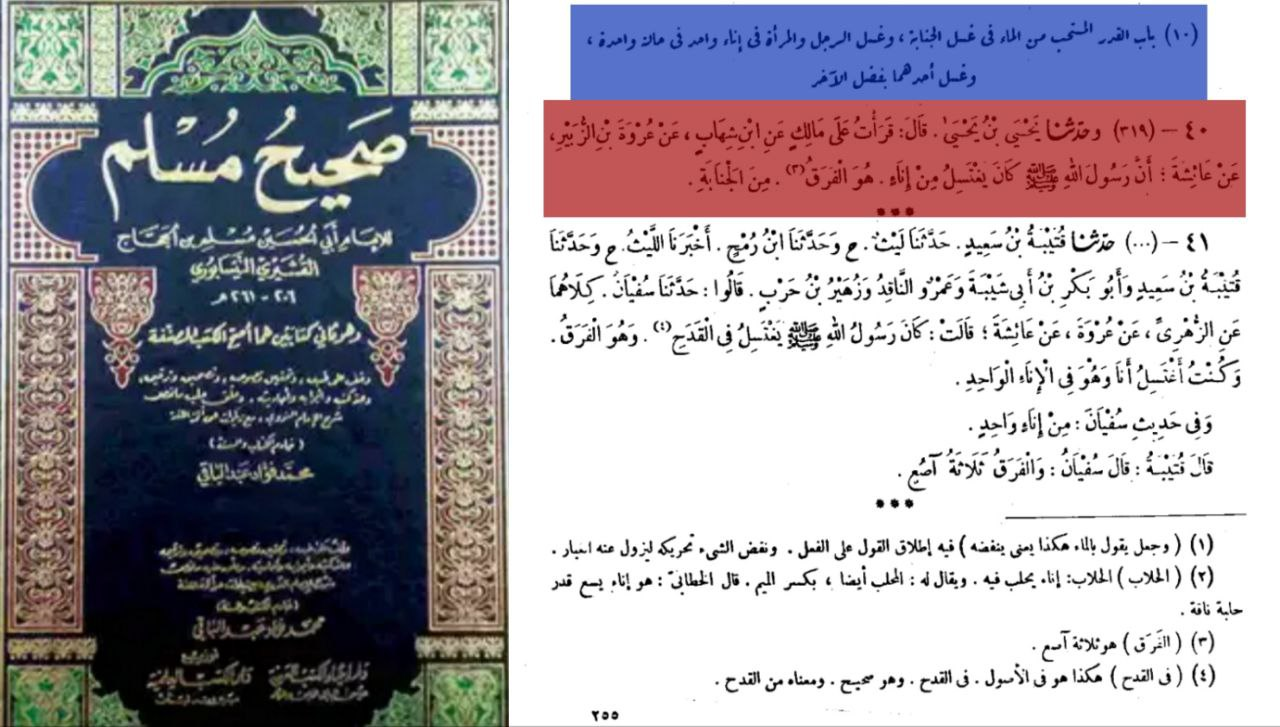 صَحِيحُ مُسْلِم
للإمام أبي الحسين مسلم بن الحجاج
القشيري النيسابوري
٢٠٦ - ٢٦١ هـ
وهو ثاني كتابين هما أصح الكتب المصنفة
محمد فؤاد عبد الباقي
محمد فؤاد عبد الباقي
دار الكتب العلمية
(١٠) باب القدر المستحب من الماء فى غسل الجنابة ، وغسل الرجل والمرأة فى إناء واحد فى حالة واحدة ،
وغسل أحدهما بفضل الآخر
٤٠ – (٣١٩) وحَدَّثَنَا يَحْيَىٰ بْنُ يَحْيَىٰ . قَالَ : قَرَأْتُ عَلَى مَالِكٍ عَنِ ابْنِ شِهَابٍ ، عَنْ عُرْوَةَ بْنِ الزُّبَيْرِ ،
عَنْ عَائِشَةَ ؛ أَنَّ رَسُولَ اللهِ ﷺ كَانَ يَغْتَسِلُ مِنْ إِنَاءٍ . هُوَ الْفَرَقُ(٣) . مِنَ الْجَنَابَةِ .
***
٤١ – (...) حَدَّثَنَا قُتَيْبَةُ بْنُ سَعِيدٍ . حَدَّثَنَا لَيْثٌ . ح وَحَدَّثَنَا ابْنُ رُمْحٍ . أَخْبَرَنَا اللَّيْثُ . ح وَحَدَّثَنَا
قُتَيْبَةُ بْنُ سَعِيدٍ وَأَبُو بَكْرِ بْنُ أَبِي شَيْبَةَ وَعَمْرٌو النَّاقِدُ وَزُهَيْرُ بْنُ حَرْبٍ . قَالُوا : حَدَّثَنَا سُفْيَانُ . كِلَاهُمَا
عَنِ الزُّهْرِيِّ ، عَنْ عُرْوَةَ ، عَنْ عَائِشَةَ ؛ قَالَتْ : كَانَ رَسُولُ اللهِ ﷺ يَغْتَسِلُ فِى الْقَدَحِ(٤) . وَهُوَ الْفَرَقُ .
وَكُنْتُ أَغْتَسِلُ أَنَا وَهُوَ فِى الْإِنَاءِ الْوَاحِدِ .
وَفِى حَدِيثِ سُفْيَانَ : مِنْ إِنَاءٍ وَاحِدٍ .
قَالَ قُتَيْبَةُ : قَالَ سُفْيَانُ : وَالْفَرَقُ ثَلَاثَةُ آصُعٍ .
***
(١) ( وجعل يقول بالماء هكذا يعنى ينفضه ) فيه إطلاق القول على الفعل . ونفض الشىء تحريكه ليزول عنه الغبار .
(٢) ( الحلاب ) الحلاب : إناء يحلب فيه . ويقال له : المحلب أيضا ، بكسر الميم . قال الخطابىّ : هو إناء يسع قدر
حلبة ناقة .
(٣) ( الفَرَق ) هو ثلاثة آصع .
(٤) ( فى القدح ) هكذا هو فى الأصول . فى القدح . وهو صحيح . ومعناه من القدح .
٢٥٥